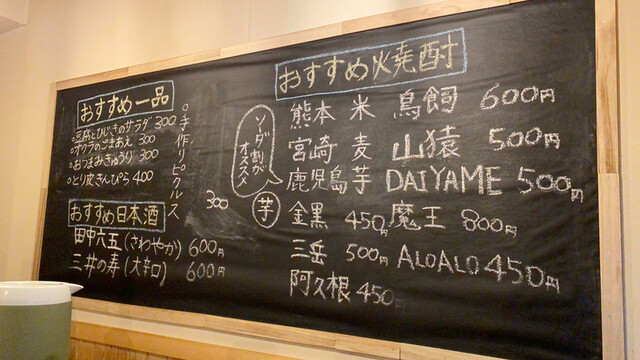 おすすめ一品
○豆腐とひじきのサラダ 300
○オクラのごまあえ 300
○おつまみきゅうり 300
○とり皮きんぴら 400
○手作りピクルス 300
おすすめ日本酒
田中六五(さわやか) 600円
三井の寿(大辛口) 600円
おすすめ火焼酎
熊本 米 鳥飼 600円
宮崎 麦 山猿 500円
鹿児島 芋 DAIYAME 500円
ソーダ割が
オススメ
芋
金黒 450円 魔王 800円
三岳 500円 ALOALO 450円
阿久根 450円